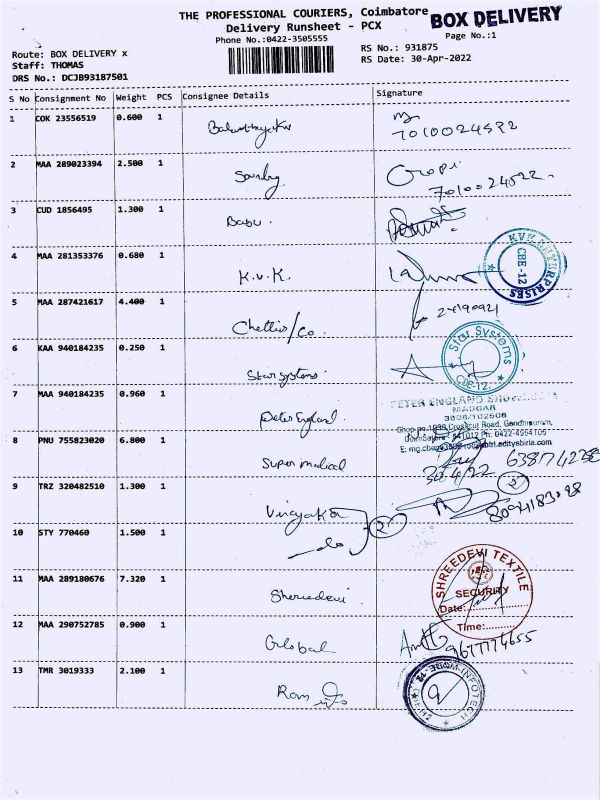 THE PROFESSIONAL COURIERS, Coimbatore
BOX DELIVERY
Delivery Runsheet - PCX
Page No.:1
Phone No.:0422-3505555
Route: BOX DELIVERY x
RS No.: 931875
Staff: THOMAS
RS Date: 30-Apr-2022
DRS No.: DCJB93187501
S No Consignment No Weight PCS Consignee Details Signature
1 COK 23556519 0.600 1
7010024592
2 MAA 289023394 2.500 1 Gopi
7010024522
3 CUD 1856495 1.300 1 Babu.
4 MAA 281353376 0.680 1 K.v.K.
KVK ENTERPRISES
CBE-12
5 MAA 287421617 4.400 1 Chettiis/Co.
24190921
6 KAA 940184235 0.250 1 Star systems.
Star Systems
CBE-12.
7 MAA 940184235 0.960 1 peter England
PETER ENGLAND
MAGGAR
3808/102506
Crosscut Road, Gandhipuram,
Coimbatore Ph: 0422-4954105
8 PNU 755823020 6.800 1 Super medical
30/4/22
9 TRZ 320482510 1.300 1 Vinayaka
2
8094183098
10 STY 770460 1.500 1 do
2
11 MAA 289180676 7.320 1 Shreedevi
SHREEDEVI TEXTILE
SECURITY
Date:
Time:
12 MAA 290752785 0.900 1 Global
9677774655
13 TMR 3019333 2.100 1 Ram info